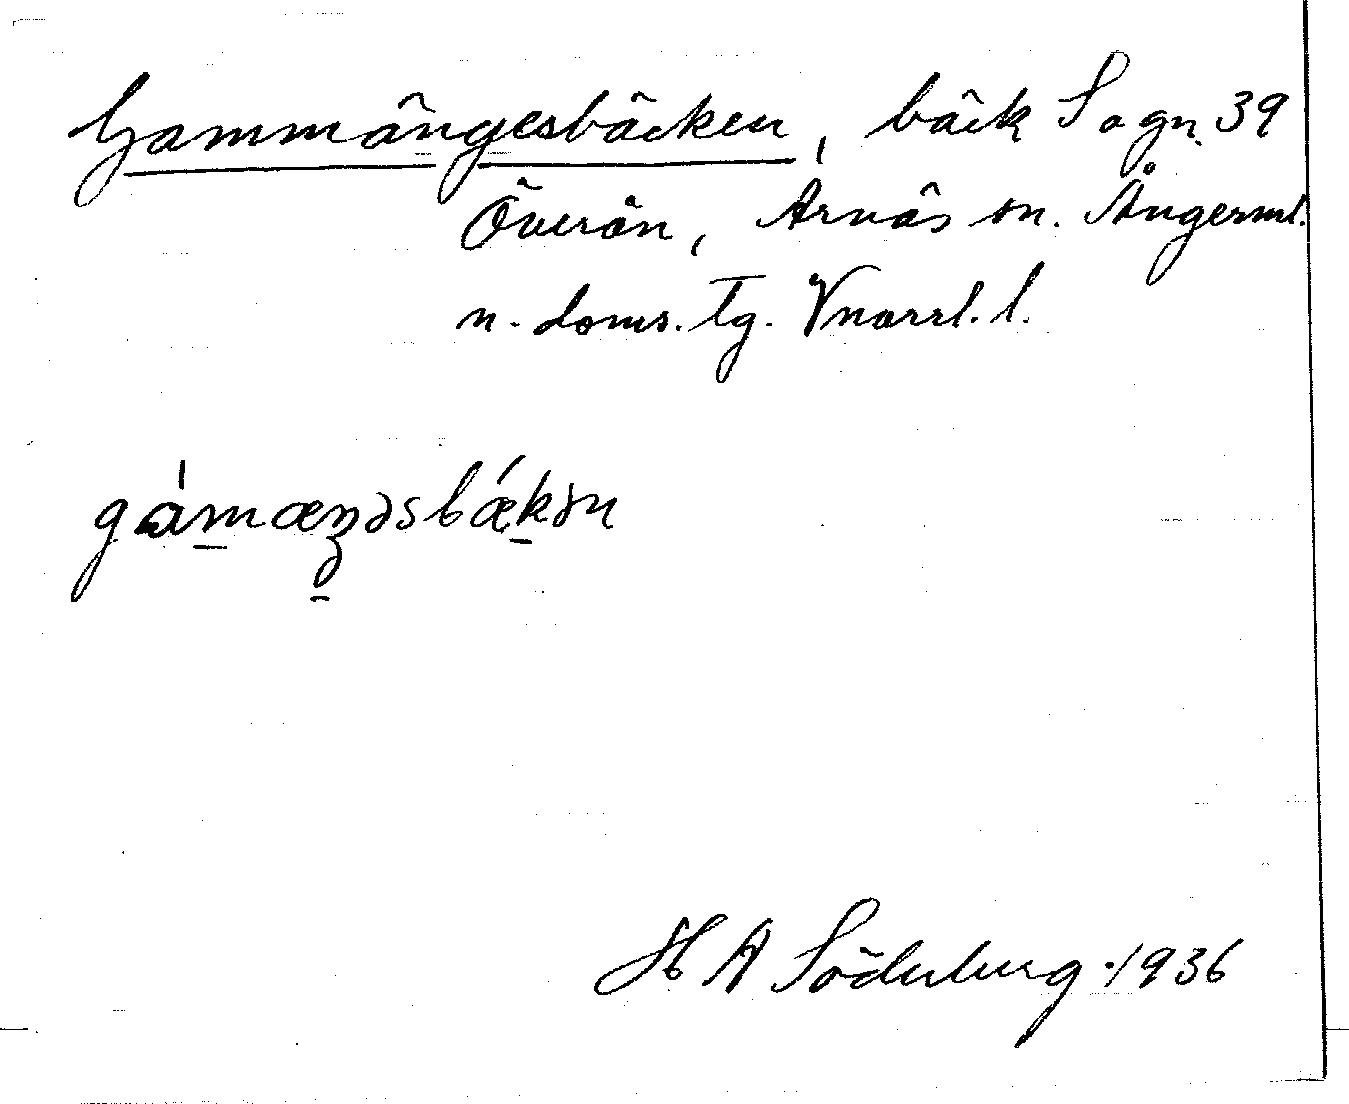 Gammängesbäcken, bäck Sagn. 39
Överön, Arnäs sn. Ångerml.
n. doms. Tg. Vnorrl. l.
gámæŋəsbǽkən
H A Söderberg 1936